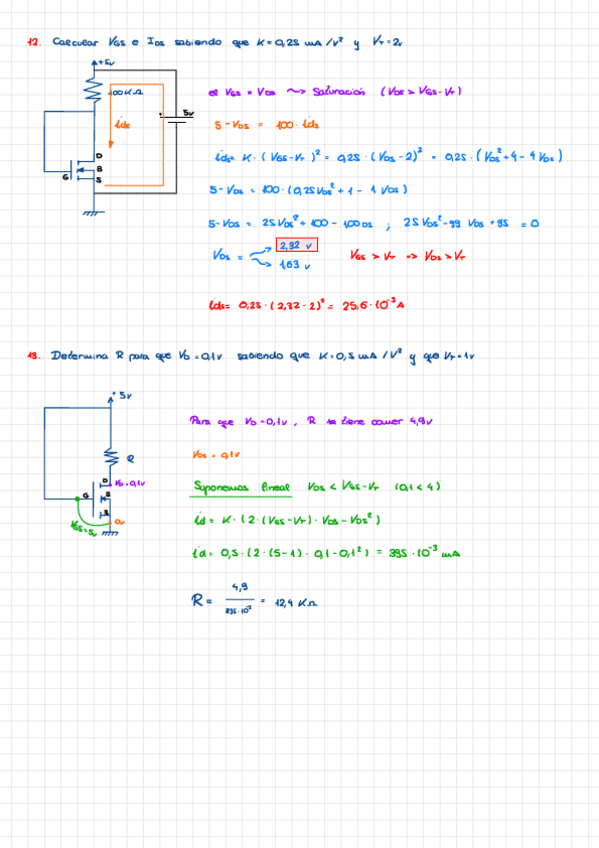 12. Calcular VGS e IDS sabiendo que K=0,25 mA/V² y VT=2v
+5v
100KΩ
ids
5v
D
B
S
G
si VGS = VDS ~> Saturación (VDS > VGS-VT)
5-VDS = 100·ids
ids= K·(VGS-VT)² = 0,25·(VDS-2)² = 0,25·(VDS²+4-4VDS)
5-VDS = 100·(0,25VDS²+1-1VDS)
5-VDS = 25VDS²+100-100DS ; 25VDS²-99VDS+95 = 0
VDS =
2,32 v
1,63 v
VGS > VT => VDS > VT
ids= 0,25·(2,32-2)² = 25,6·10⁻³ A
13. Determina R para que VD=0,1v sabiendo que K=0,5 mA/V² y que VT=1v
+5v
R
D
VD=0,1v
G
B
S
VGS=5v
0v
Para que VD=0,1v, R se tiene comer 4,9v
VDS = 0,1v
Suponemos lineal VDS < VGS-VT (0,1<4)
id = K·(2·(VGS-VT)·VDS-VDS²)
id = 0,5·(2·(5-1)·0,1-0,1²) = 395·10⁻³ mA
R = 4,9 / 395·10⁻³ = 12,4 KΩ